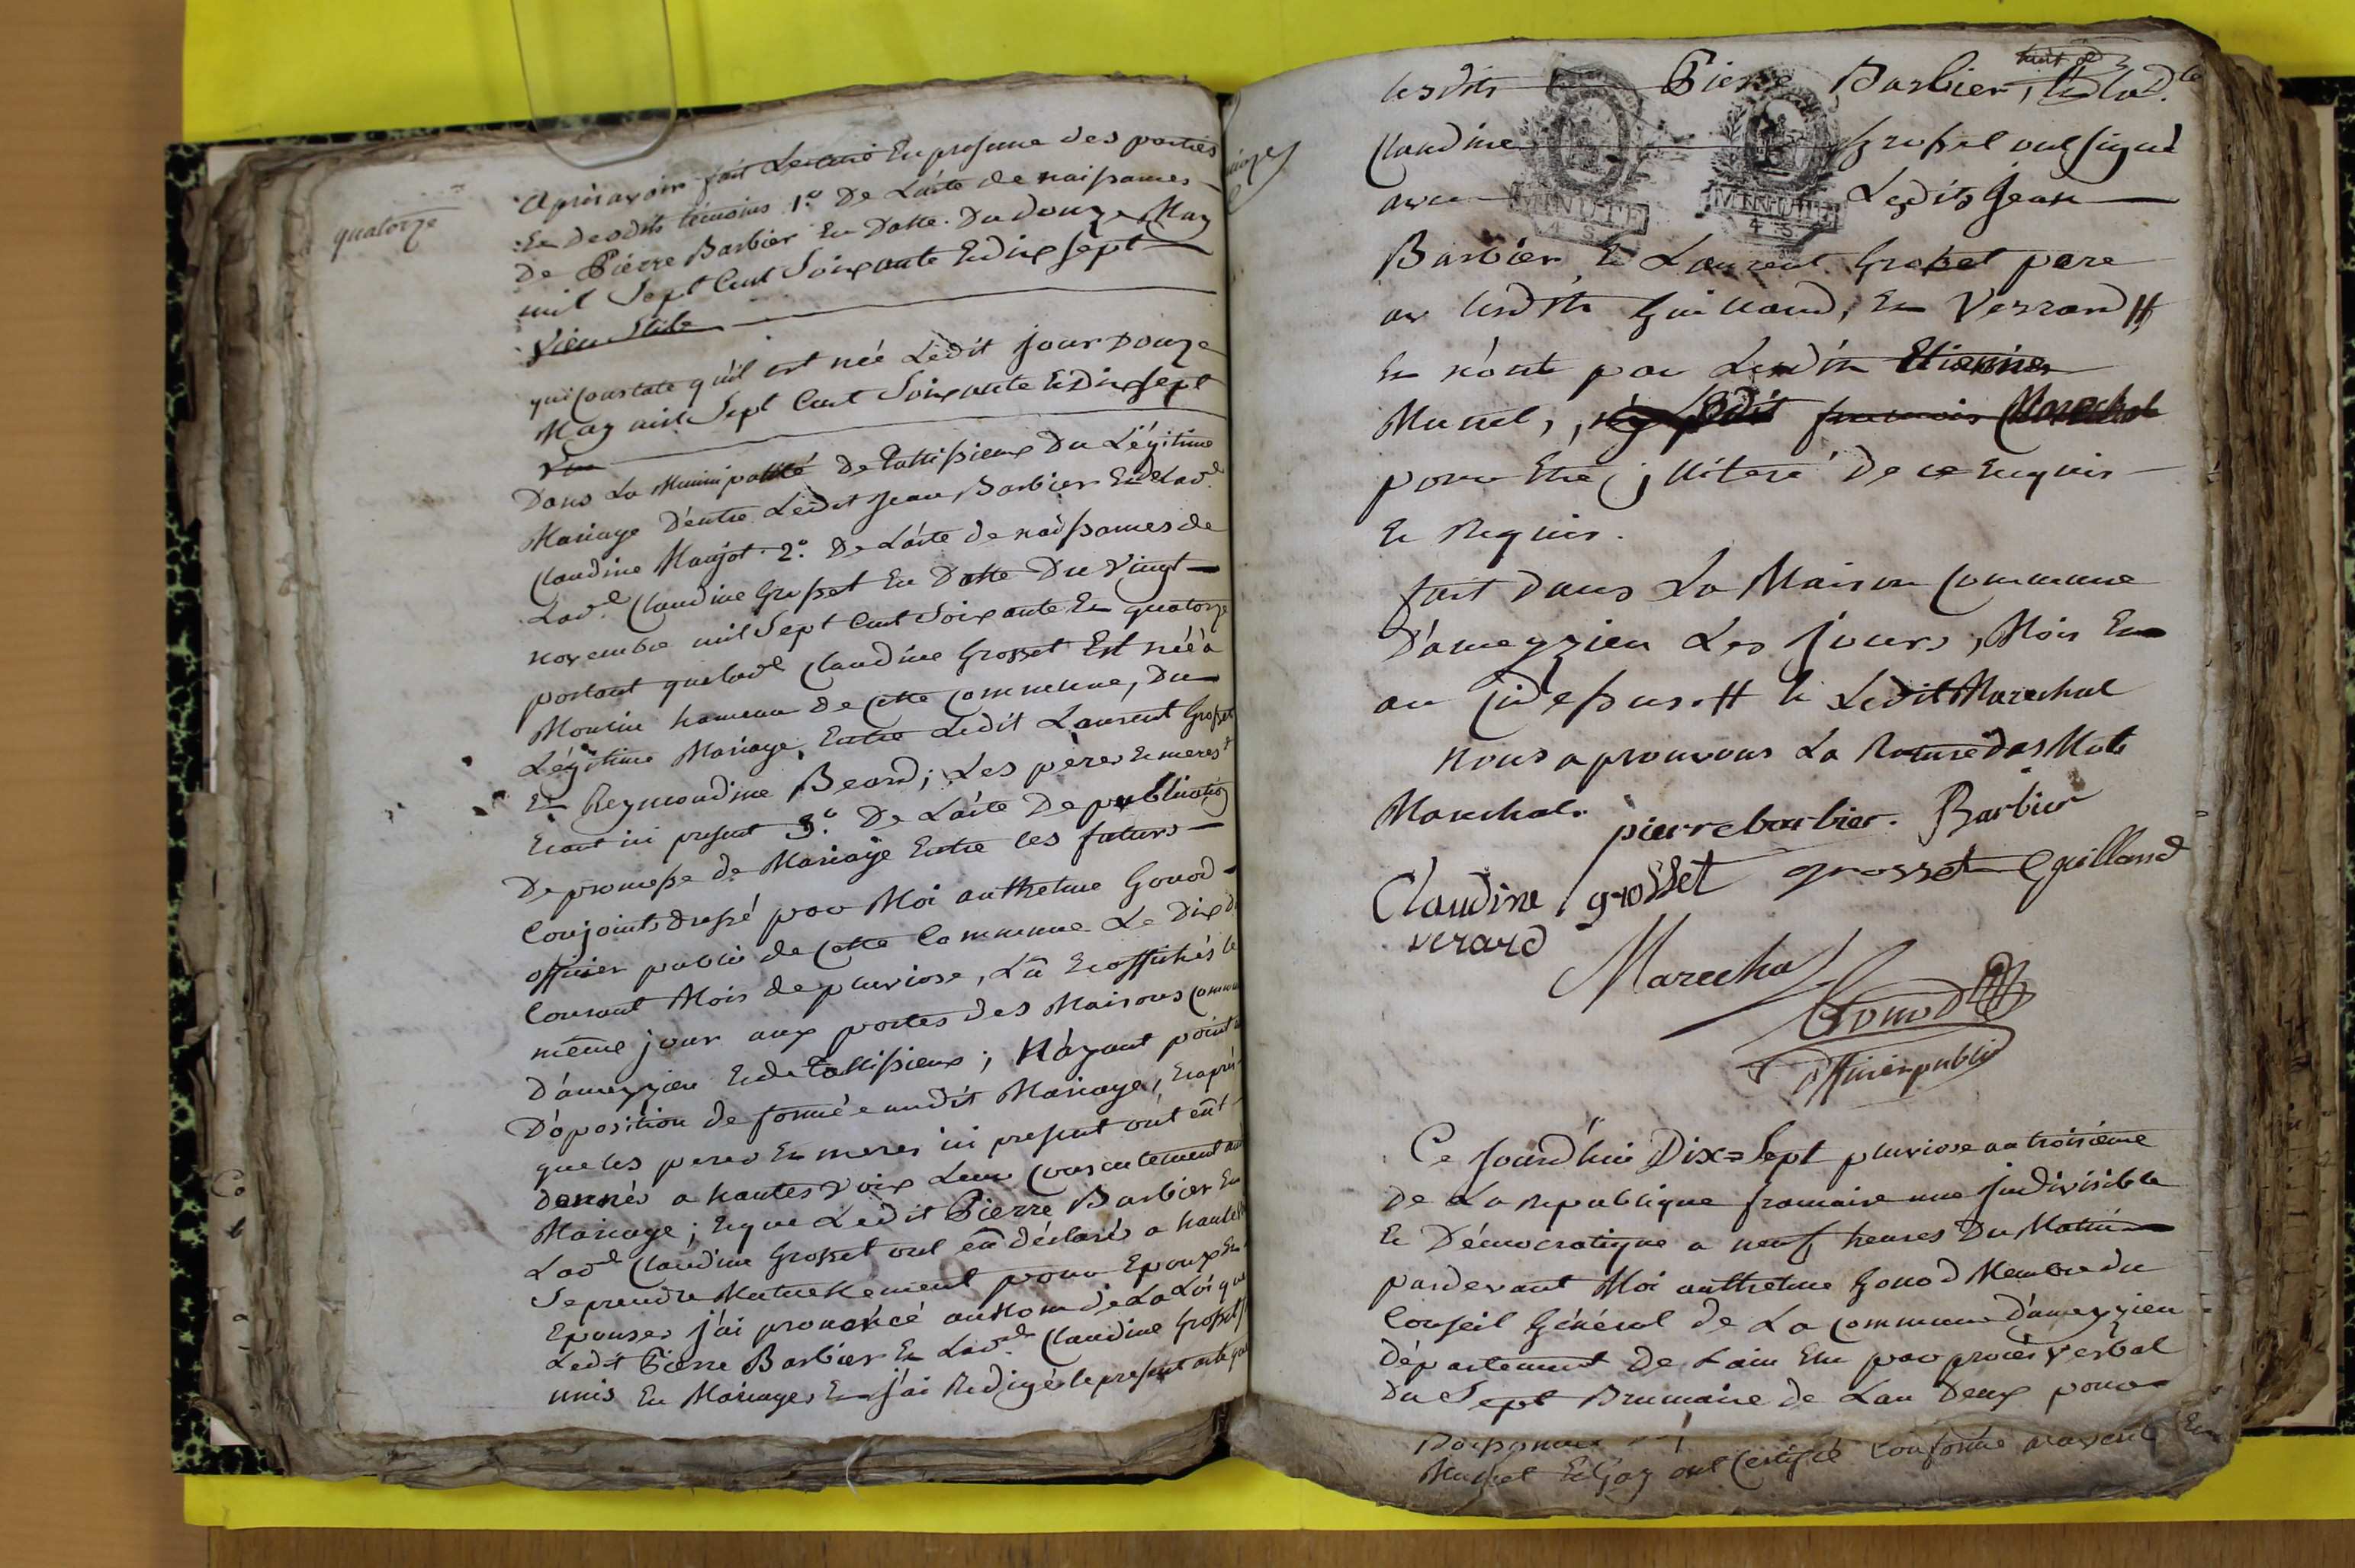 quatorze
Aprés avoir fait Lecture En presence des parties
En desdits témoins 1.° De L'acte de naissances
De Pierre Barbier En Datte Du douze May
mil Sept Cent Soixante Et dix sept
Vieu Stile
qui constate qu'il est née Ledit jour Douze
May mil Sept Cent Soixante Et Dix sept
Dans La Municipalité De Talissieux Du Légitime
Mariage D'entre Ledit Jean Barbier Et Lad.e
Claudine Maujot. 2.° De L'acte de naissances de
Lad.e Claudine Grosset En Datte Du Vingt
novembre mil Sept Cent Soixante En quatorze
portant que lad.e Claudine Grosset Est née à
Moulin hameau De Cette Commune, Du
Légitime Mariage, Entre Ledit Laurent Grosset
En Reymondine Beard; Les pères En meres
Etant ici present 3.° De L'acte De publication
De promesse de Mariage Entre les futurs
Conjoints dressé par Moi anthelme Gonod
officier public de Cette Commune Le Dix d
Courant Mois de pluviose, Lû En affichés le
même jour aux portes des Maisons Commu
D'ameyzieu Et de Talissieux; N'ayant point
D'oposition de formée audit Mariage, En après
que les peres En meres ici present ont eût
donnés a hautes Voix Leur Consentement aud
Mariage; En que Ledit Pierre Barbier En
Lad.e Claudine Grosset ont eû déclarés a haute
Se prendre Mutuellement pour Epoux En
Epouses j'ai prononcé au Nom de La Loi que
Ledit Pierre Barbier En Lad.e Claudine Grosset
unis En Mariages En j'ai Redigé le present acte que
lesdits Pierre Barbier, Lad.te
Claudine Grosset ont signé
avec Lesdits Jean
MINUTE MINUTE
4 S 4 S
Barbier, En Laurent Grosset pere
av lesdits Guilland, En Verrand #
En non par Ledit Etienne
Munet, Ledit francois Marechal
pour Etre illiteré De ce Enquis
En Requis.
fait Dans La Maison Commune
D'ameyzieu Les jours, Mois En
an Cidessus. # En Ledit Marechal
Nous aprouvons La Rature des Mots
Marechal.
pierre barbier. Barbier
Claudine grosset grosset Guilland
verard
Marechal
Gonod
officier public
Ce jourd'hui Dix=Sept pluviose an troisième
De La Republique francaise une indivisible
En Démocratique a neuf heures Du Matin
pardevant Moi anthelme Gonod Membre du
Conseil Général de La Commune D'ameyzieu
Département De Lain Elu par procès Verbal
Du Sept Brumaire de Lan Deux pour
Munet En Goy ont Certifié Conforme